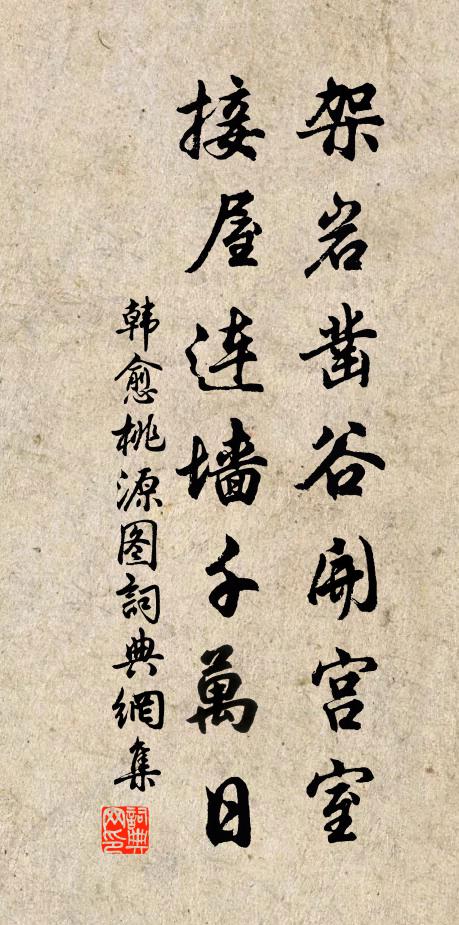 架岩凿谷开宫室
接屋连墙千萬日
韩愈桃源图詞典網集
詞典网印